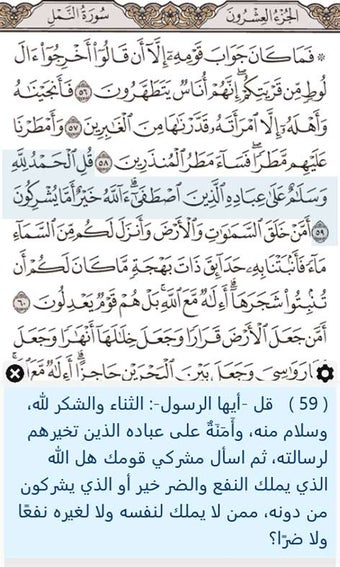 الجزء العشرون سورة النمل
۞ فَمَا كَانَ جَوَابَ قَوْمِهِۦٓ إِلَّآ أَن قَالُوٓا۟ أَخْرِجُوٓا۟ ءَالَ
لُوطٍ مِّن قَرْيَتِكُمْ ۖ إِنَّهُمْ أُنَاسٌ يَتَطَهَّرُونَ ٥٦ فَأَنجَيْنَٰهُ
وَأَهْلَهُۥٓ إِلَّا ٱمْرَأَتَهُۥ قَدَّرْنَٰهَا مِنَ ٱلْغَٰبِرِينَ ٥٧ وَأَمْطَرْنَا
عَلَيْهِم مَّطَرًا ۖ فَسَآءَ مَطَرُ ٱلْمُنذَرِينَ ٥٨ قُلِ ٱلْحَمْدُ لِلَّهِ
وَسَلَٰمٌ عَلَىٰ عِبَادِهِ ٱلَّذِينَ ٱصْطَفَىٰٓ ۗ ءَآللَّهُ خَيْرٌ أَمَّا يُشْرِكُونَ
٥٩ أَمَّنْ خَلَقَ ٱلسَّمَٰوَٰتِ وَٱلْأَرْضَ وَأَنزَلَ لَكُم مِّنَ ٱلسَّمَآءِ
مَآءً فَأَنۢبَتْنَا بِهِۦ حَدَآئِقَ ذَاتَ بَهْجَةٍ مَّا كَانَ لَكُمْ أَن
تُنۢبِتُوا۟ شَجَرَهَآ ۗ أَءِلَٰهٌ مَّعَ ٱللَّهِ ۚ بَلْ هُمْ قَوْمٌ يَعْدِلُونَ ٦٠
أَمَّن جَعَلَ ٱلْأَرْضَ قَرَارًا وَجَعَلَ خِلَٰلَهَآ أَنْهَٰرًا وَجَعَلَ
لَهَا رَوَٰسِىَ وَجَعَلَ بَيْنَ ٱلْبَحْرَيْنِ حَاجِزًا ۗ أَءِلَٰهٌ مَّعَ
( 59 ) قل -أيها الرسول-: الثناء والشكر لله،
وسلام منه، وأَمَنَةٌ على عباده الذين تخيرهم
لرسالته، ثم اسأل مشركي قومك هل الله
الذي يملك النفع والضر خير أو الذي يشركون
من دونه، ممن لا يملك لنفسه ولا لغيره نفعًا
ولا ضرًا؟